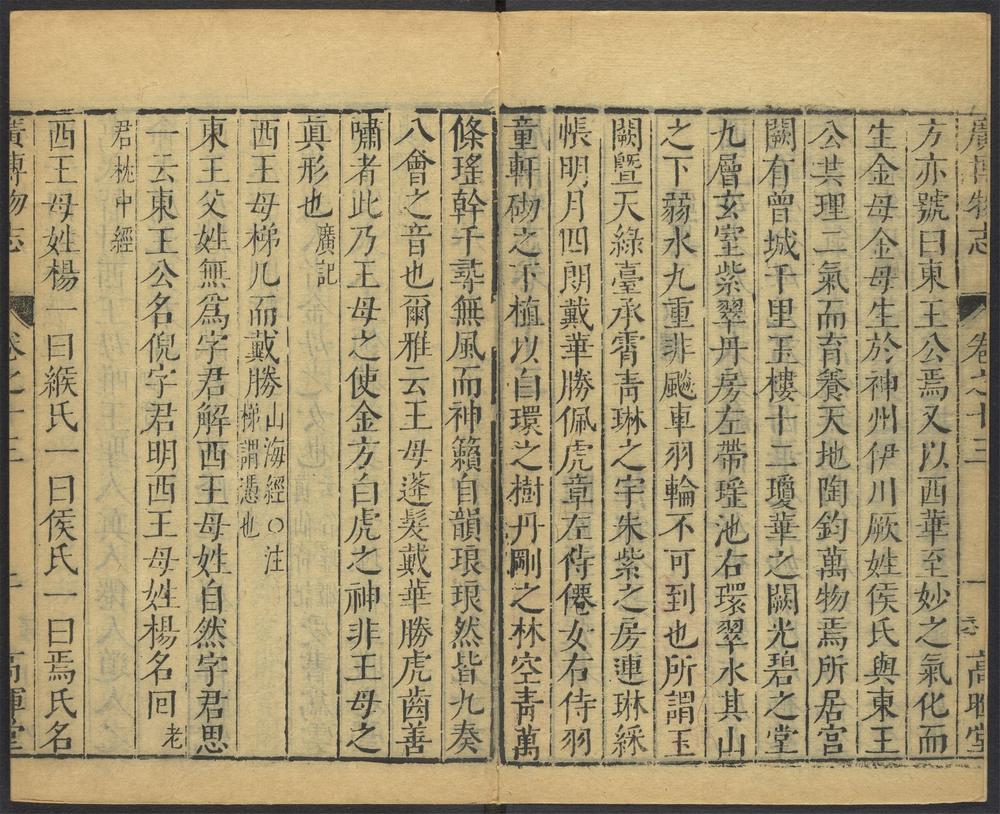 廣博物志 卷之十三 一 高暉堂
方亦號曰東王公焉又以西華至妙之氣化而
生金母金母生於神州伊川厥姓侯氏與東王
公共理二氣而育養天地陶鈞萬物焉所居宮
闕有曾城千里玉樓十二瓊華之闕光碧之堂
九層玄室紫翠丹房左帶瑤池右環翠水其山
之下弱水九重非飈車羽輪不可到也所謂玉
闕曁天綠臺承霄青琳之宇朱紫之房連琳綵
帳明月四朗戴華勝佩虎章左侍僊女右侍羽
童軒砌之下植以自環之樹丹剛之林空青萬
條瑤幹千尋無風而神籟自韻琅琅然皆九奏
八會之音也爾雅云王母蓬髮戴華勝虎齒善
嘯者此乃王母之使金方白虎之神非王母之
眞形也廣記
西王母梯几而戴勝山海經○注梯謂憑也
東王父姓無爲字君解西王母姓自然字君思
一云東王公名倪字君明西王母姓楊名囘老
君枕中經
西王母姓楊一曰緱氏一曰侯氏一曰焉氏名
廣博物志 卷之十三 二 高暉堂